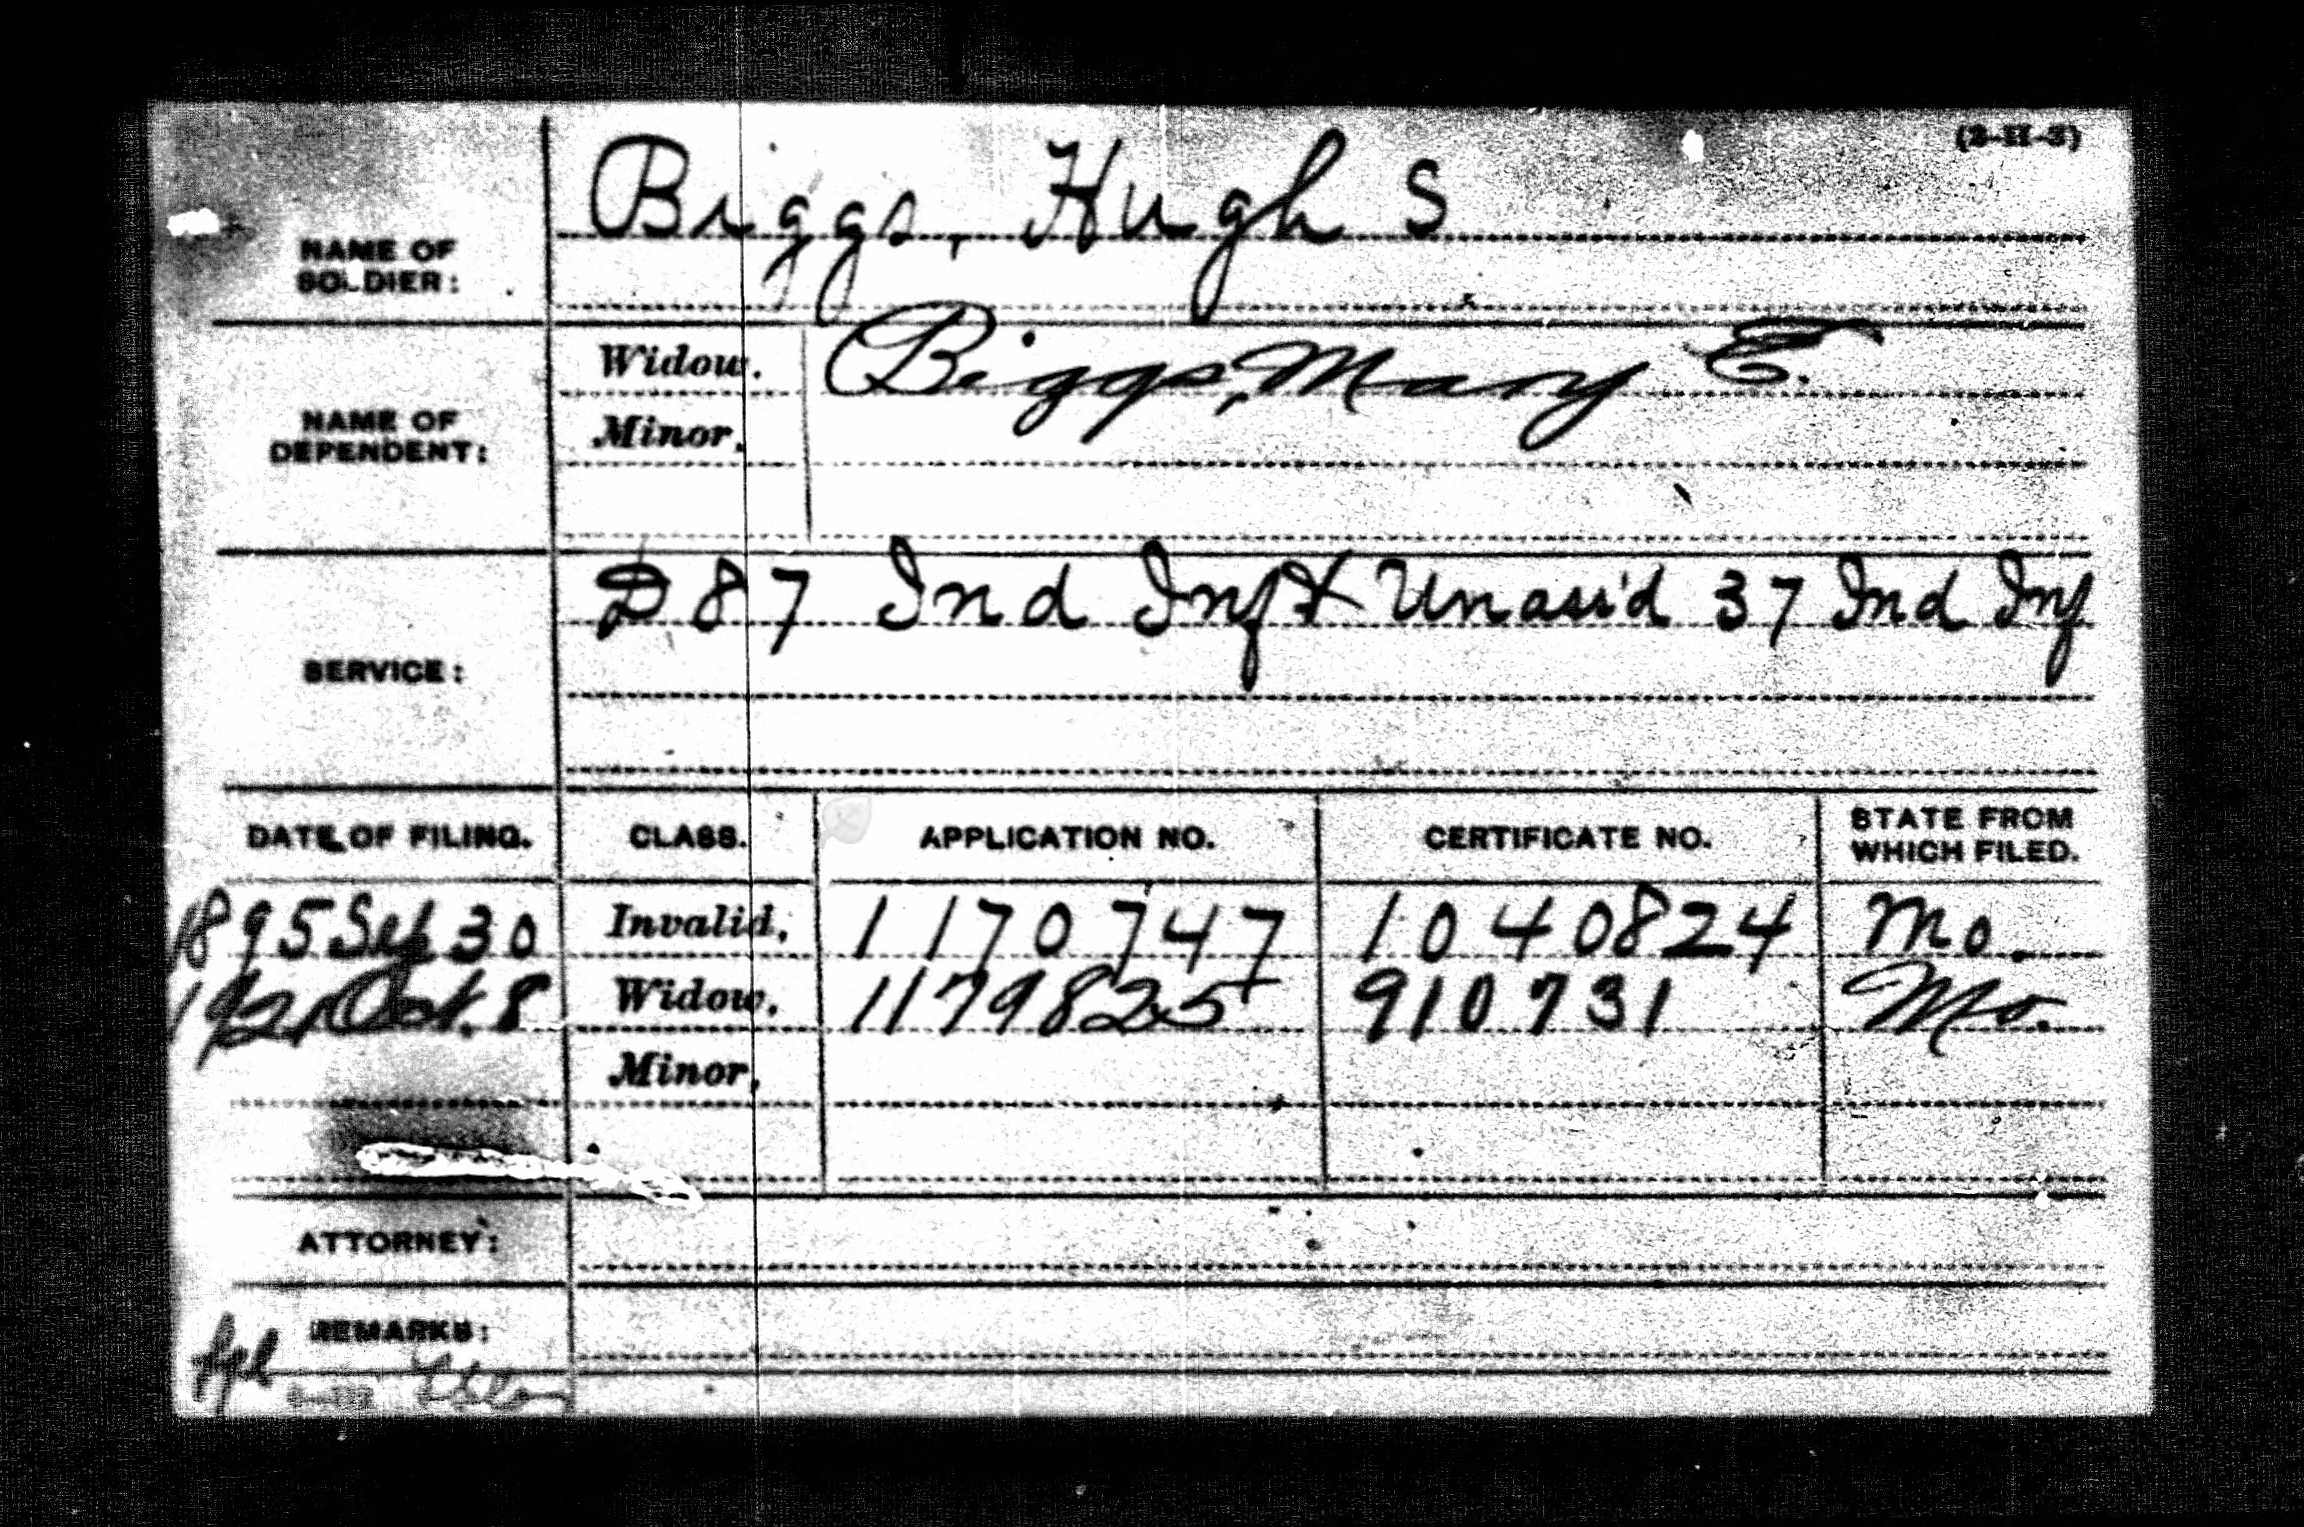 (3-II-3)
Biggs, Hugh S
NAME OF
SOLDIER:
Widow. Biggs, Mary E.
NAME OF
DEPENDENT:
Minor.
D 87 Ind Inf & Unass'd 37 Ind Inf
SERVICE:
DATE OF FILING. CLASS. APPLICATION NO. CERTIFICATE NO. STATE FROM WHICH FILED.
1895 Sep 30 Invalid. 1170747 1040824 Mo.
1921 Oct. 8 Widow. 1179825 910731 Mo.
Minor.
ATTORNEY:
REMARKS: